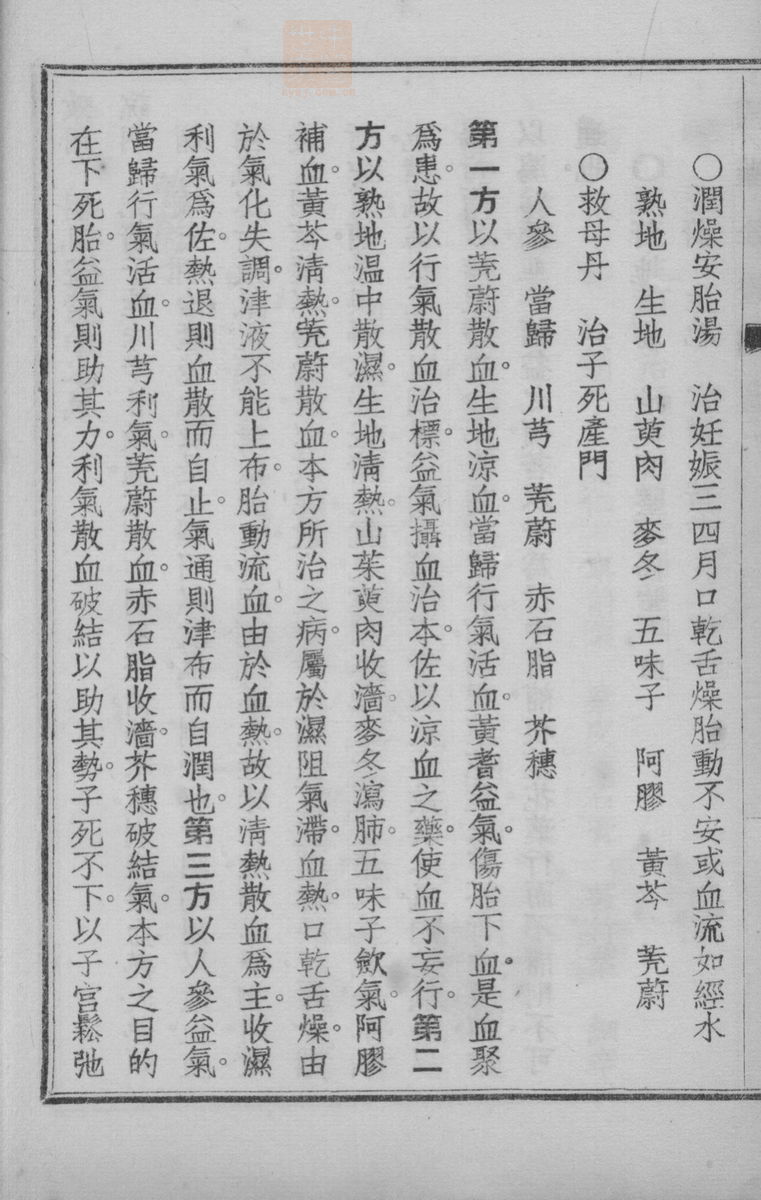 ○潤燥安胎湯　治妊娠三四月口乾舌燥胎動不安或血流如經水
熟地　生地　山萸肉　麥冬　五味子　阿膠　黃芩　茺蔚
○救母丹　治子死產門
人參　當歸　川芎　茺蔚　赤石脂　芥穗
第一方以茺蔚散血。生地涼血。當歸行氣活血。黃耆益氣。傷胎下血。是血聚
爲患。故以行氣散血治標。益氣攝血治本。佐以涼血之藥。使血不妄行。第二
方以熟地温中散濕。生地淸熱。山茱萸肉收濇。麥冬瀉肺。五味子歛氣。阿膠
補血。黃芩淸熱。茺蔚散血。本方所治之病。屬於濕阻氣滯。血熱。口乾舌燥。由
於氣化失調。津液不能上布。胎動流血。由於血熱。故以淸熱散血爲主。收濕
利氣爲佐。熱退則血散而自止。氣通則津布而自潤也。第三方以人參益氣。
當歸行氣活血。川芎利氣。茺蔚散血。赤石脂收濇。芥穗破結氣。本方之目的
在下死胎。益氣則助其力。利氣散血破結以助其勢。子死不下。以子宮鬆弛